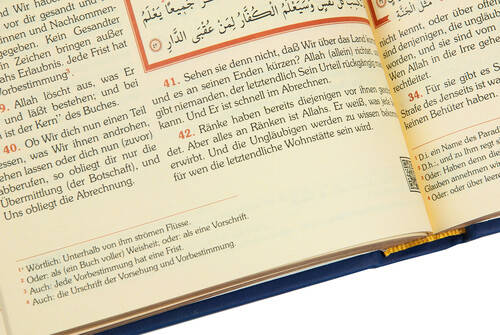 جَمِيعًا يَعْلَمُ
نَفْسٍ وَسَيَعْلَمُ الْكُفَّارُ لِمَنْ عُقْبَى الدَّارِ
vor dir gesandt und
und Nachkommen-
geben. Kein Gesandter
Zeichen bringen außer
ahs Erlaubnis. Jede Frist hat
Vorbestimmung³.
9. Allah löscht aus, was Er
und läßt bestehen; und bei
ist der Kern⁴ des Buches.
40. Ob Wir dich nun einen Teil
essen, was Wir ihnen androhen,
ehen lassen oder dich nun (zuvor)
abberufen, so obliegt dir nur die
Übermittlung (der Botschaft), und
Uns obliegt die Abrechnung.
41. Sehen sie denn nicht, daß Wir über das Land
und es an seinen Enden kürzen? Allah (allein) richtet,
gibt niemanden, der letztlich Sein Urteil rückgängig
kann. Und Er ist schnell im Abrechnen.
42. Ränke haben bereits diejenigen vor ihnen
det. Aber alles an Ränken ist Allahs. Er weiß, was jede
erwirbt. Und die Ungläubigen werden zu wissen bekommen,
für wen die letztendliche Wohnstätte sein wird.
¹ Wörtlich: Unterhalb von ihm strömen Flüsse.
² Oder: als (ein Buch voller) Weisheit; oder: als eine Vorschrift.
³ Auch: Jede Vorbestimmung hat eine Frist.
⁴ Auch: die Urschrift der Vorsehung und Vorbestimmung.
nicht kennt, oder
nennt), oder über offen
den Ungläubigen
worden; und sie sind vom
Wen Allah in die Irre gehen
rechtleitet.
34. Für sie gibt es
Strafe des Jenseits ist
keinen Behüter haben.
¹ D.i. ein Name des
² D.h.: und zu Ihm
³ Oder: Haben denn die
Glauben annehmen
⁴ Oder: oder über leere